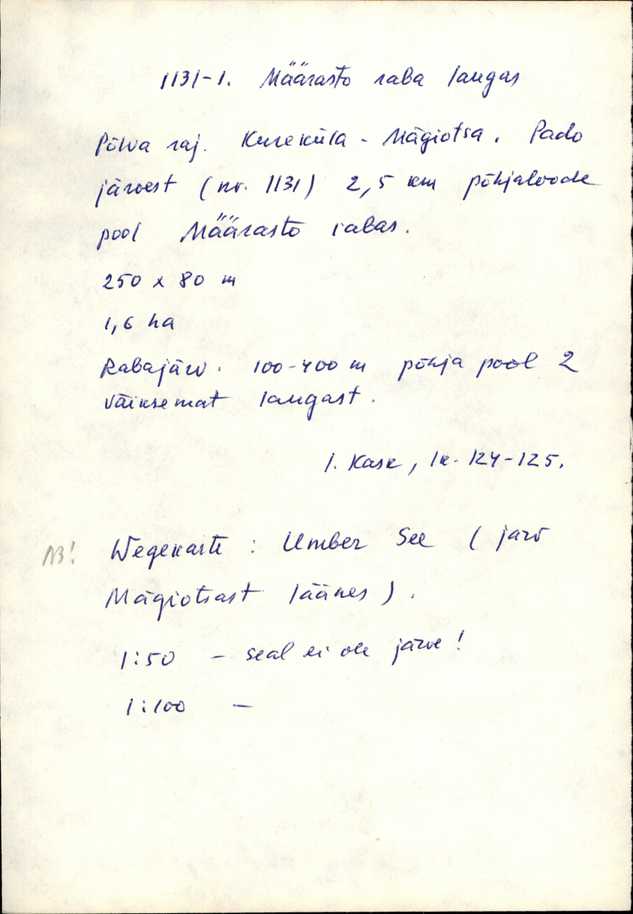 1131-1. Määrasto raba laugas
Põlva raj. Kureküla - Mägiotsa. Pado
järvest (nr. 1131) 2,5 km põhjaloode
pool Määrasto rabas.
250 x 80 m
1,6 ha
Rabajärv. 100-400 m põhja pool 2
väiksemat laugast.
I. Kask, lk. 124-125.
NB! Wegekarte : Umber See (järv
Mägiotsast läänes).
1:50 - seal ei ole järve!
1:100 -